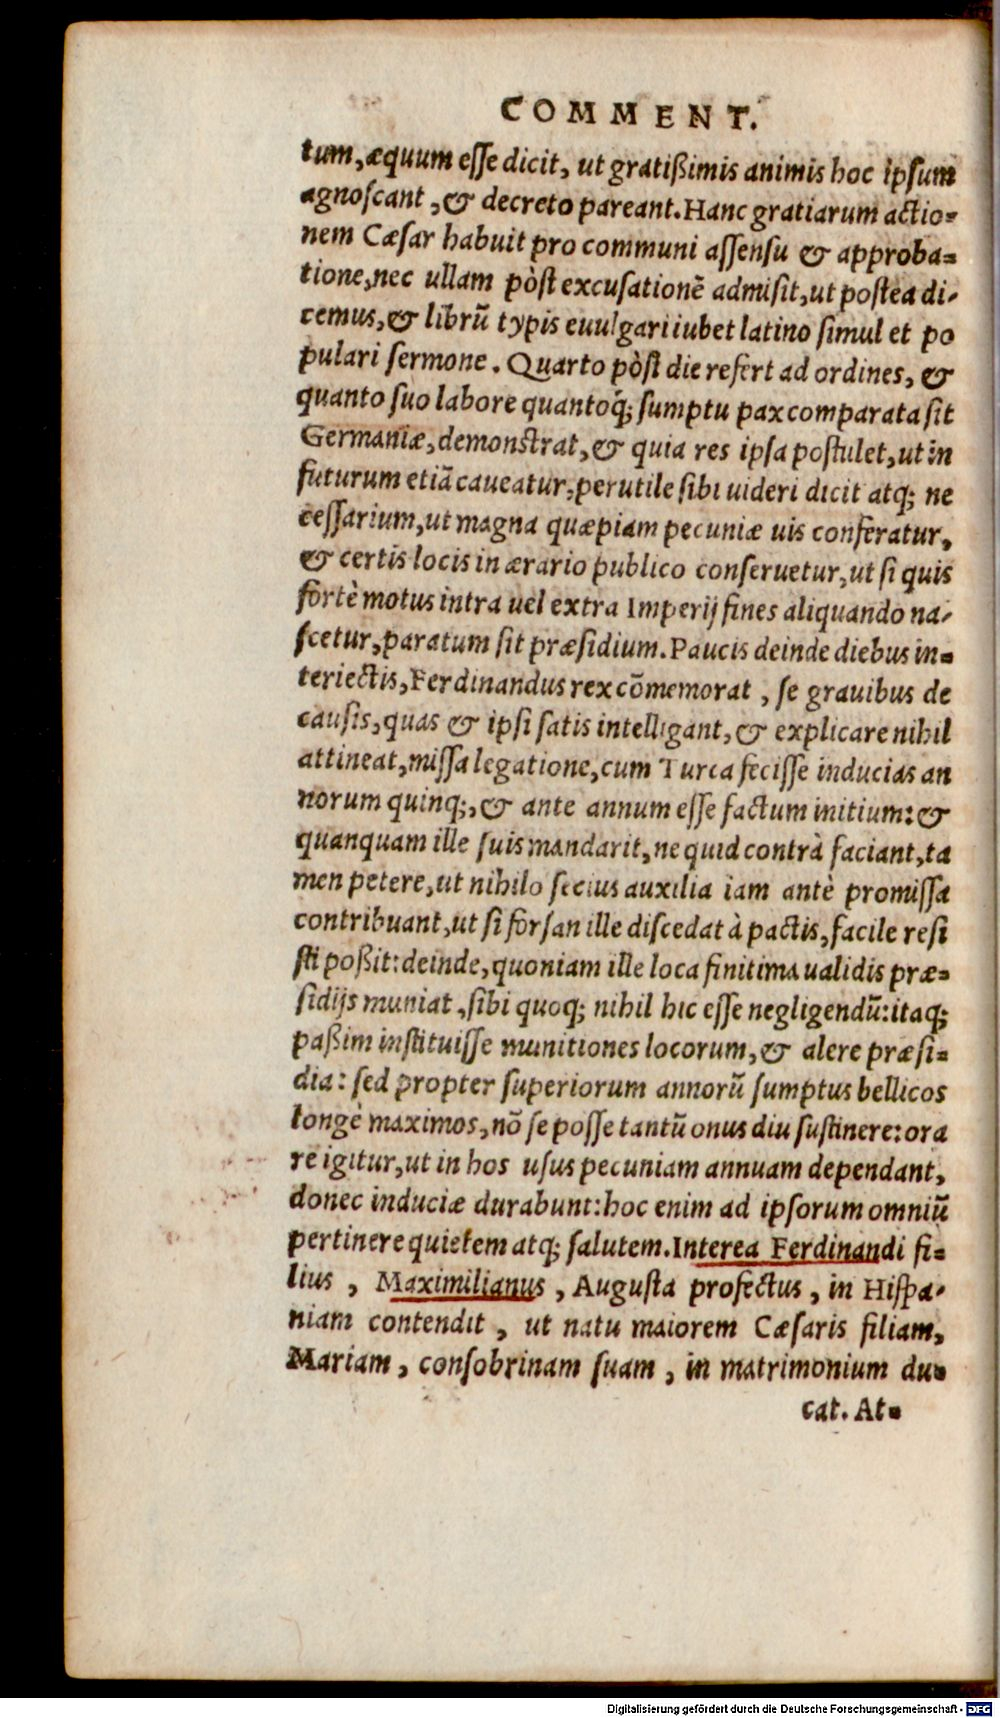 COMMENT.
tum, æquum esse dicit, ut gratißimis animis hoc ipsum
agnoscant, & decreto pareant. Hanc gratiarum actio-
nem Cæsar habuit pro communi assensu & approba-
tione, nec ullam pòst excusationē admisit, ut postea di-
cemus, & librū typis euulgari iubet latino simul et po
pulari sermone. Quarto pòst die refert ad ordines, &
quanto suo labore quantoq; sumptu pax comparata sit
Germaniæ, demonstrat, & quia res ipsa postulet, ut in
futurum etiā caueatur, perutile sibi uideri dicit atq; ne
cessarium, ut magna quæpiam pecuniæ uis conferatur,
& certis locis in ærario publico conseruetur, ut si quis
fortè motus intra uel extra Imperij fines aliquando na-
scetur, paratum sit præsidium. Paucis deinde diebus in-
teriectis, Ferdinandus rex cōmemorat, se grauibus de
causis, quas & ipsi satis intelligant, & explicare nihil
attineat, missa legatione, cum Turca fecisse inducias an
norum quinq;, & ante annum esse factum initium: &
quanquam ille suis mandarit, ne quid contrà faciant, ta
men petere, ut nihilo secius auxilia iam antè promissa
contribuant, ut si forsan ille discedat à pactis, facile resi
sti poßit: deinde, quoniam ille loca finitima ualidis præ-
sidijs muniat, sibi quoq; nihil hic esse negligendū: itaq;
paßim instituisse munitiones locorum, & alere præsi-
dia: sed propter superiorum annorū sumptus bellicos
longè maximos, nō se posse tantū onus diu sustinere: ora
re igitur, ut in hos usus pecuniam annuam dependant,
donec induciæ durabunt: hoc enim ad ipsorum omniū
pertinere quietem atq; salutem. Interea Ferdinandi fi-
lius, Maximilianus, Augusta profectus, in Hispa-
niam contendit, ut natu maiorem Cæsaris filiam,
Mariam, consobrinam suam, in matrimonium du-
cat. At-
Digitalisierung gefördert durch die Deutsche Forschungsgemeinschaft - DFG